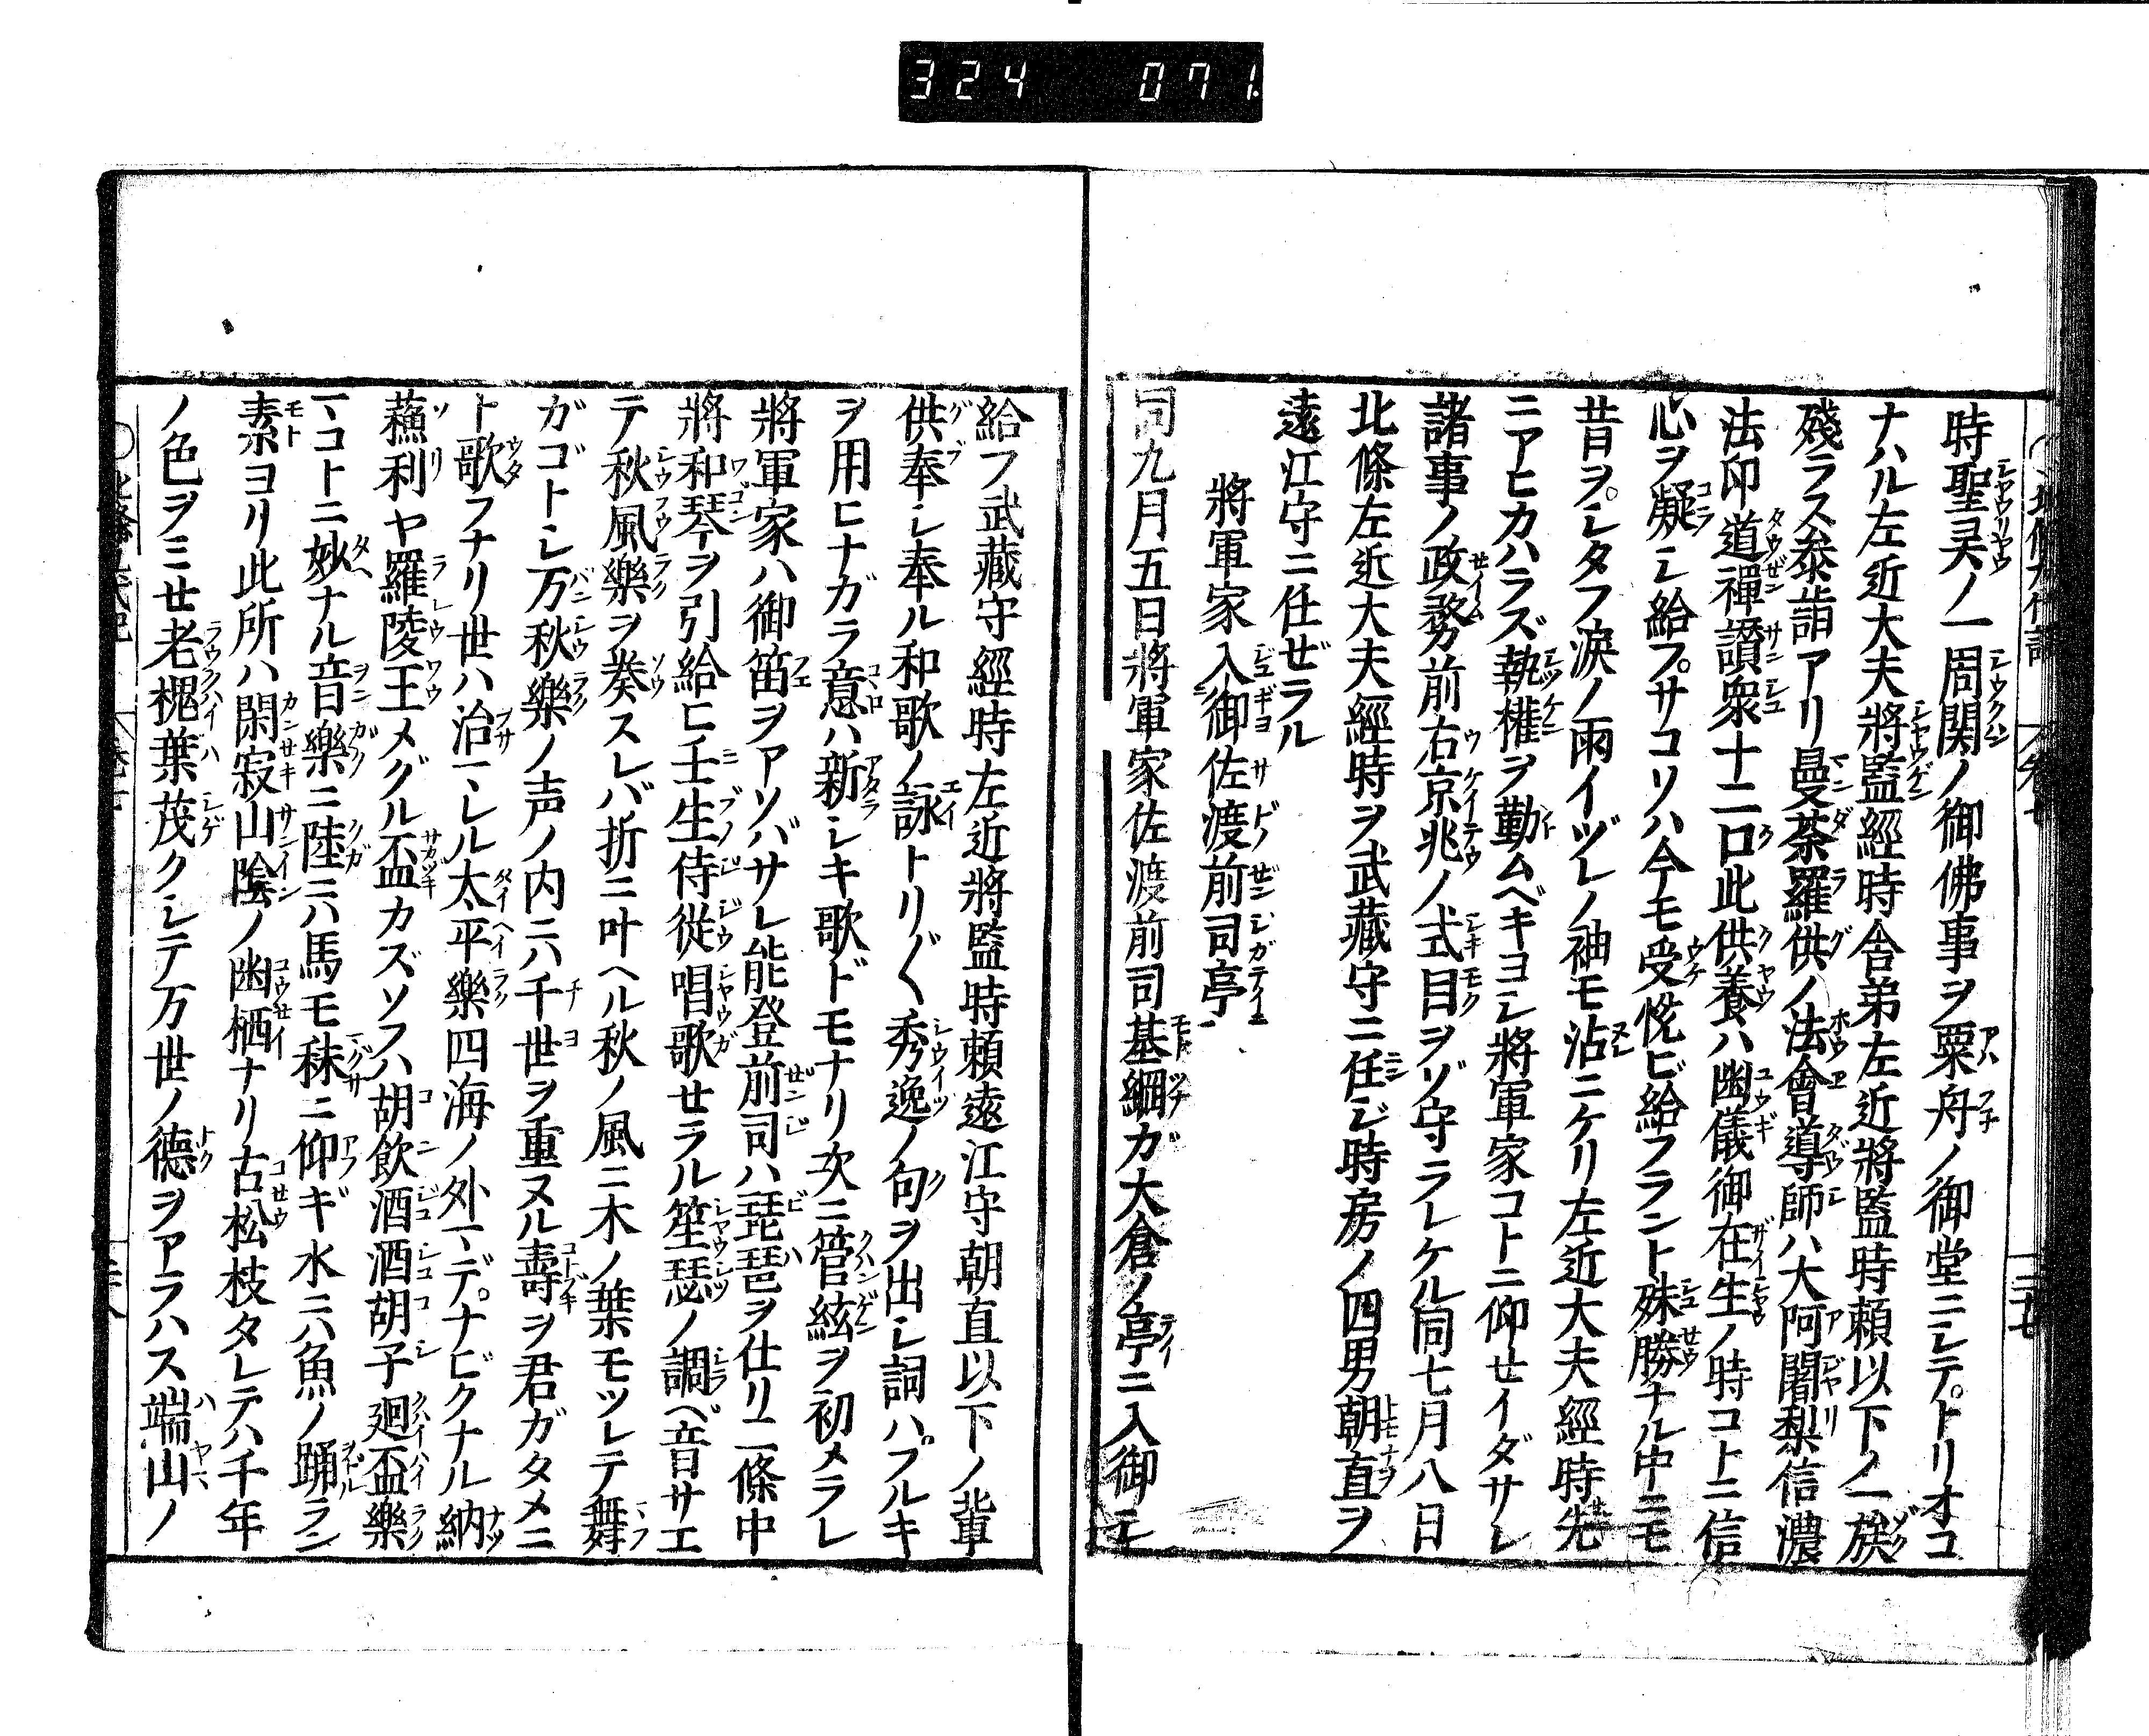 324 071
時聖灵ノ一周関ノ御佛事ヲ粟舟ノ御堂ニシテトリオコ
ナハル左近大夫將監經時舎弟左近將監時頼以下ノ一族
殘ラス参詣アリ曼荼羅供ノ法會導師ハ大阿闍梨信濃
法印道禪讃衆十二口此供養ハ幽儀御在生ノ時コトニ信
心ヲ凝シ給フサコソハ今モ受悦ビ給フラント殊勝ナル中ニモ
昔ヲシタフ涙ノ雨イヅレノ袖モ沾ニケリ左近大夫經時先
ニアヒカハラズ執權ヲ勤ムベキヨシ將軍家コトニ仰セイダサレ
諸事ノ政務前右京兆ノ式目ヲゾ守ラレケル同七月八日
北條左近大夫經時ヲ武藏守ニ任ジ時房ノ四男朝直ヲ
遠江守ニ任ゼラル
將軍家入御佐渡前司亭
同九月五日將軍家佐渡前司基綱ガ大倉ノ亭ニ入御シ
給フ武藏守經時左近將監時頼遠江守朝直以下ノ輩
供奉シ奉ル和歌ノ詠トリ〴〵秀逸ノ句ヲ出シ詞ハフルキ
ヲ用ヒナガラ意ハ新シキ歌ドモナリ次ニ管絃ヲ初メラレ
將軍家ハ御笛ヲアソバサレ能登前司ハ琵琶ヲ仕リ二條中
將和琴ヲ引給ヒ壬生侍從唱歌セラル笙瑟ノ調ベ音サエ
テ秋風樂ヲ奏スレバ折ニ叶ヘル秋ノ風ニ木ノ葉モツレテ舞
ガゴトシ万秋樂ノ声ノ内ニハ千世ヲ重ヌル壽ヲ君ガタメニ
ト歌フナリ世ハ治マレル太平樂四海ノ外マデナビクナル納
蘓利ヤ羅陵王メグル盃カズソフハ胡飲酒酒胡子廻盃樂
マコトニ妙ナル音樂ニ陸ニハ馬モ秣ニ仰ギ水ニハ魚ノ踊ラン
素ヨリ此所ハ閑寂山陰ノ幽栖ナリ古松枝タレテハ千年
ノ色ヲミセ老槐葉茂クシテ万世ノ德ヲアラハス端山ノ